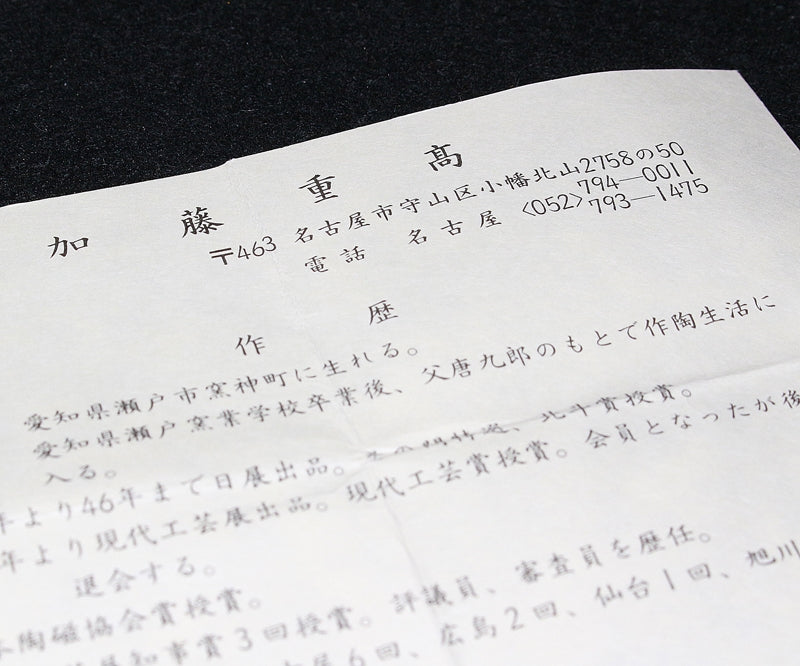 加藤重高
〒463 名古屋市守山区小幡北山2758の50
電話 名古屋 〈052〉794―0011
793―1475
作歴
愛知県瀬戸市窯神町に生れる。
愛知県瀬戸窯業学校卒業後、父唐九郎のもとで作陶生活に
入る。
年より46年まで日展出品。その間特選、北斗賞授賞。
年より現代工芸展出品。現代工芸賞授賞。会員となったが後
退会する。
陶磁協会賞授賞。
県知事賞3回授賞。評議員、審査員を歴任。
屋6回、広島2回、仙台1回、旭川